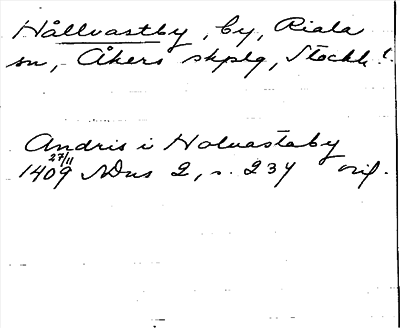 Hållvastby, by, Riala
sn, Åkers skplg, Stockh. l.
Andris i Holvastaby
27/11
1409 SDns 2, s. 234 orig.